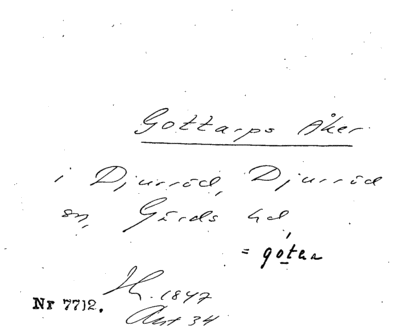 Gottarps Åker
i Djurröd, Djurröd
sn, Gärds hd
= gótar
Nr 7712. 1847
Akt 34